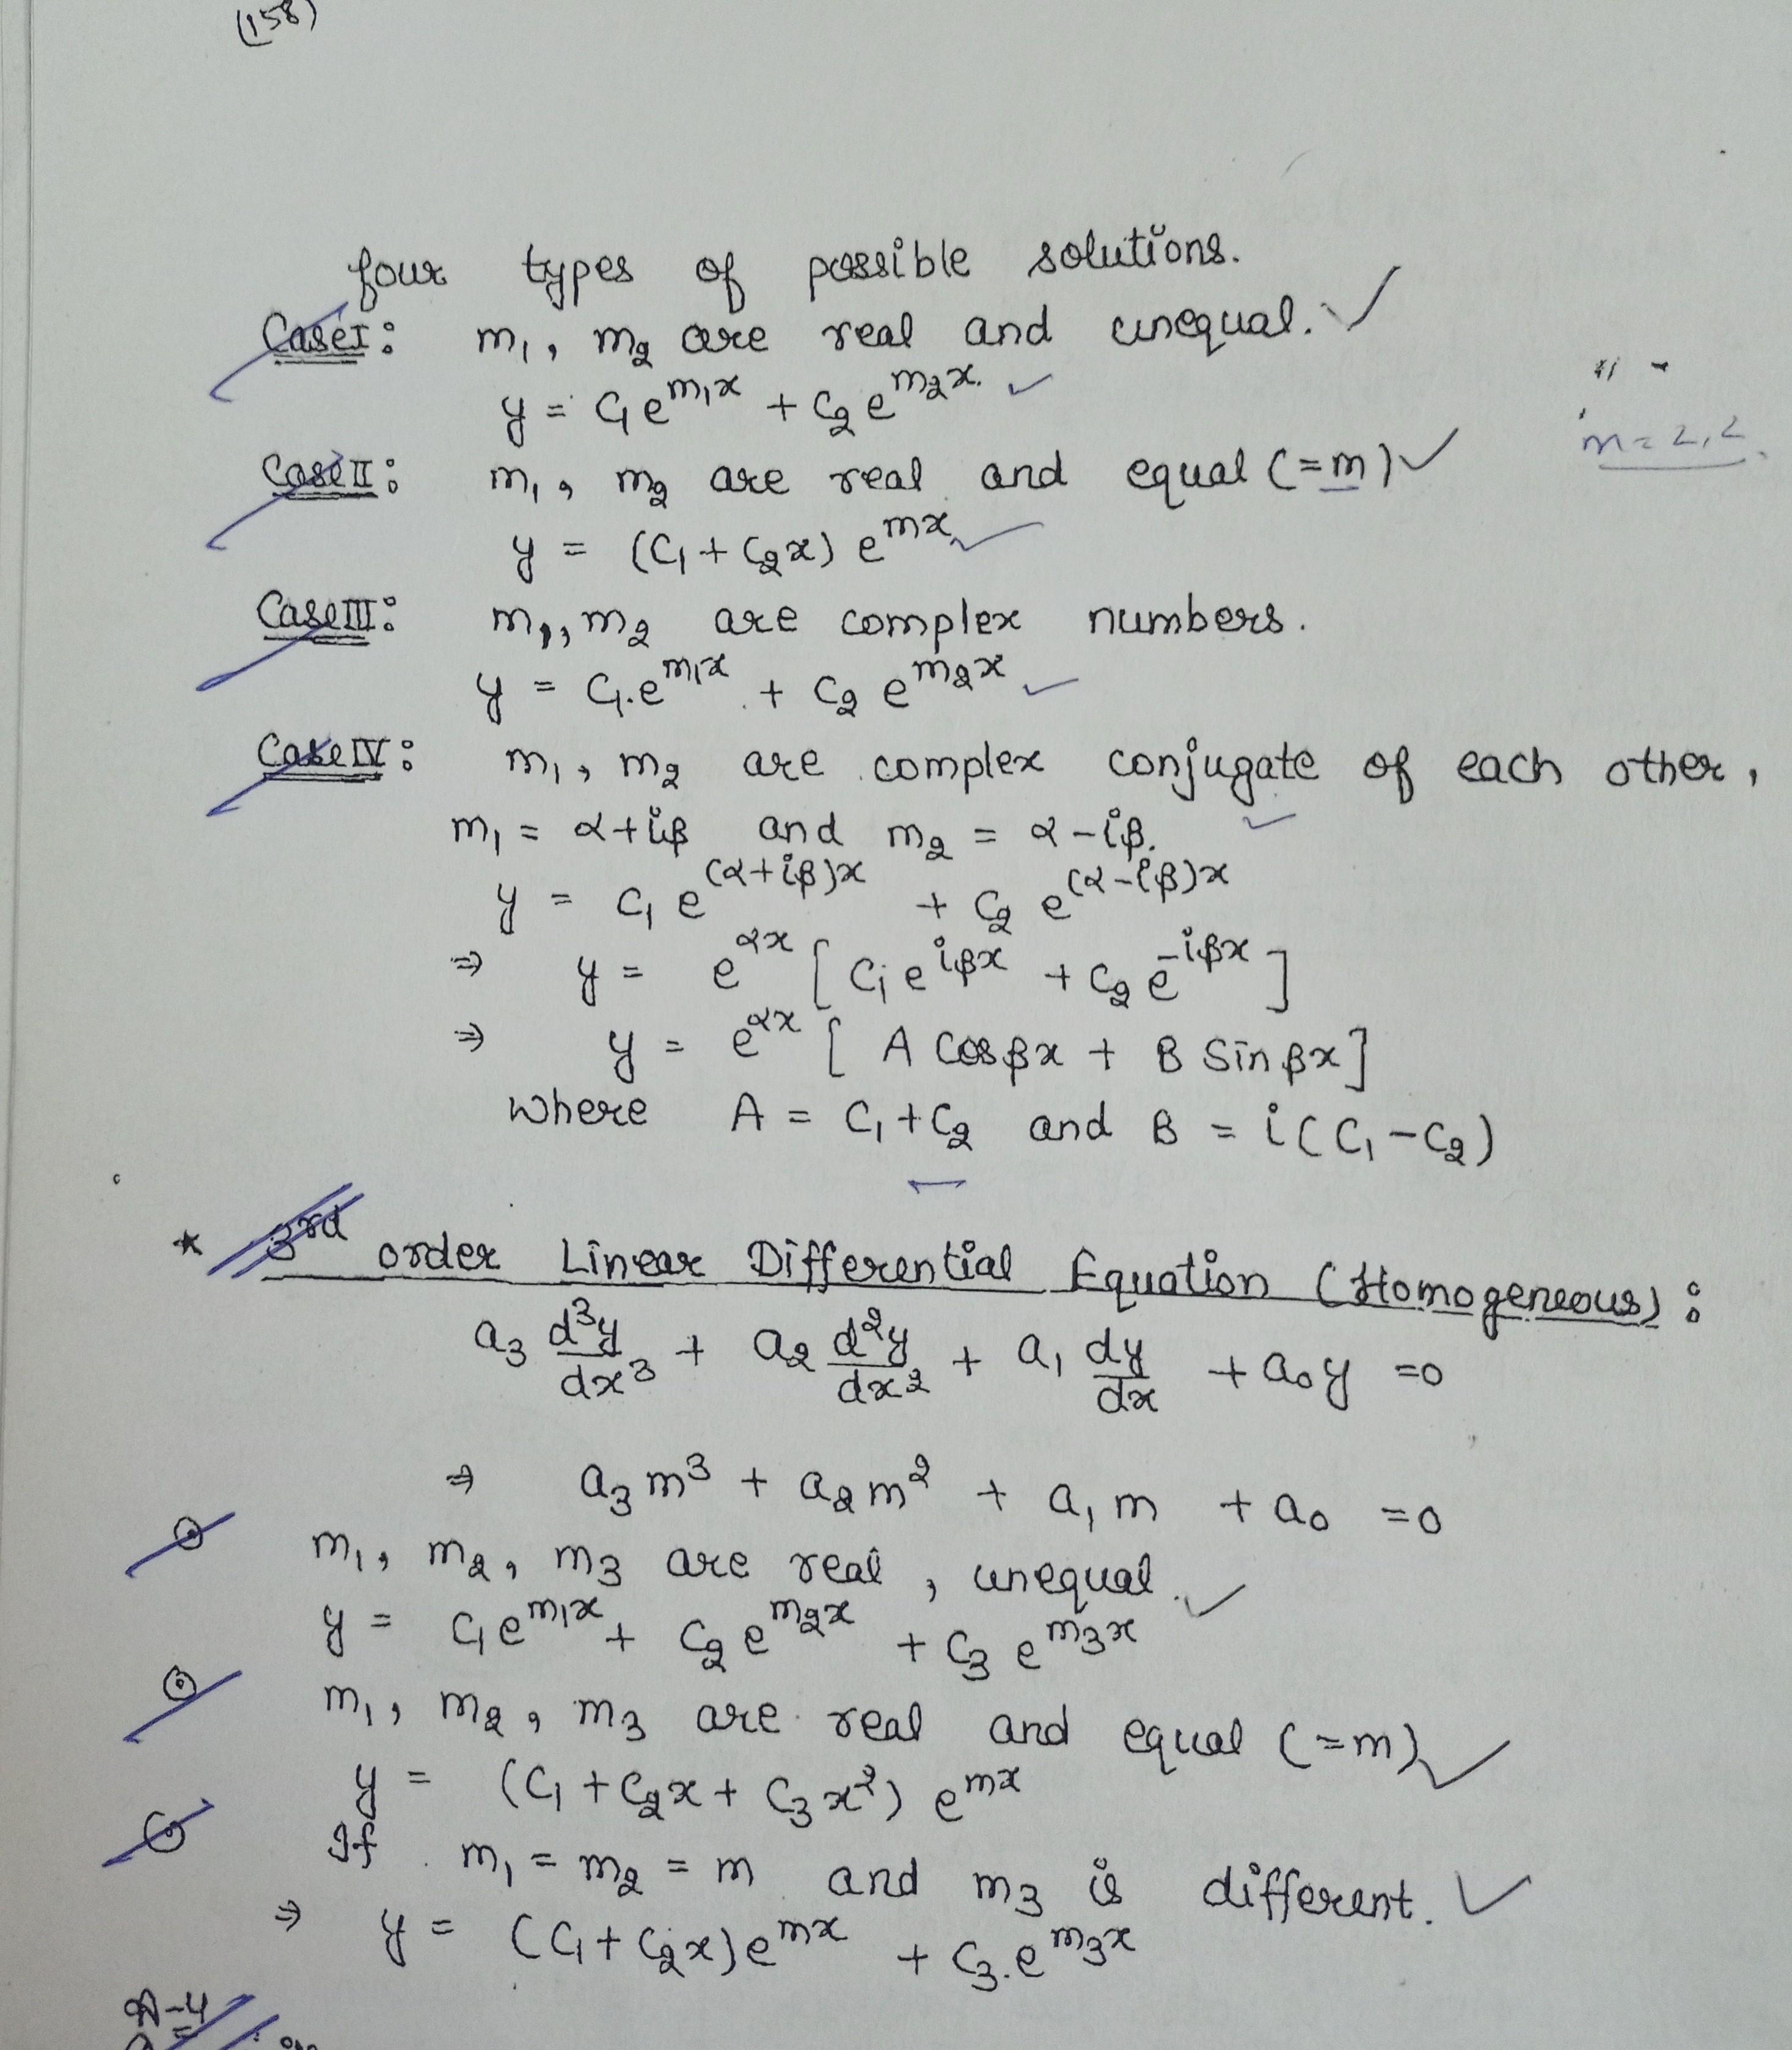 (158)
four types of possible solutions.
Case I: m₁, m₂ are real and unequal.
y = C₁e^{m₁x} + C₂e^{m₂x}.
m = 2, 2
Case II: m₁, m₂ are real and equal (=m)
y = (C₁ + C₂x) e^{mx}
Case III: m₁, m₂ are complex numbers.
y = C₁.e^{m₁x} + C₂ e^{m₂x}
Case IV: m₁, m₂ are complex conjugate of each other,
m₁ = α+iβ and m₂ = α-iβ.
y = C₁ e^{(α+iβ)x} + C₂ e^{(α-iβ)x}
⇒ y = e^{αx} [C₁e^{iβx} + C₂e^{-iβx}]
⇒ y = e^{αx} [A Cosβx + B Sinβx]
where A = C₁+C₂ and B = i(C₁-C₂)
* 3rd order Linear Differential Equation (Homogeneous):
a₃ d³y/dx³ + a₂ d²y/dx² + a₁ dy/dx + a₀y = 0
⇒ a₃m³ + a₂m² + a₁m + a₀ = 0
⊙ m₁, m₂, m₃ are real, unequal.
y = C₁e^{m₁x} + C₂e^{m₂x} + C₃e^{m₃x}
⊙ m₁, m₂, m₃ are real and equal (=m)
y = (C₁ + C₂x + C₃x²) e^{mx}
⊙ If m₁ = m₂ = m and m₃ is different.
⇒ y = (C₁+C₂x)e^{mx} + C₃.e^{m₃x}